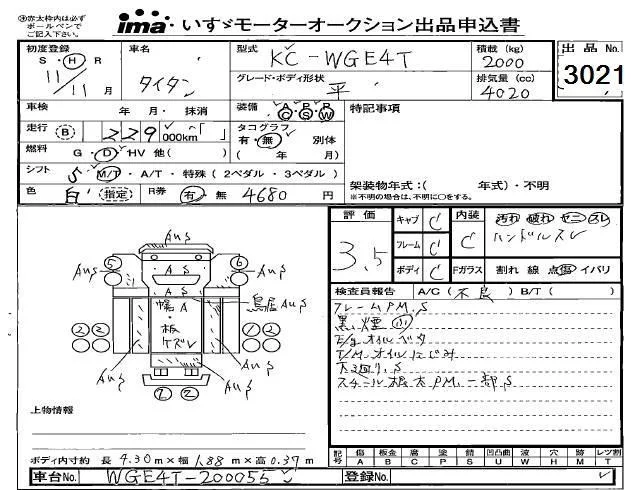 ㊟赤太枠内は必ず
ボールペンで
ご記入下さい。
ima いすゞモーターオークション出品申込書
初度登録 車名 型式 KC-WGE4T 積載 (kg) 出品 No.
S・H・R 2000 3021
11/11月 タイタン グレード・ボディ形状 平 排気量 (cc)
4020
車検 年 月・抹消 装備 A P R C S W 特記事項
走行 B 229 000km タコグラフ
有・無 別体
燃料 G・D・HV 他( ) ( 年 月)
シフト 5 M/T・A/T・特殊(2ペダル・3ペダル)
架装物年式:( 年式)・不明
色 白 指定 R券 有・無 4680 円 ※不明の場合は、不明に○をする。
評価 キャブ C 内装 汚れ 破れ ヤニ スレ
3.5 フレーム C C ハンドルスレ
ボディ C Fガラス 割れ 線 点傷 イバリ
検査員報告 A/C( 不良 ) B/T( )
フレームPM.S
黒煙 小
E/gオイルベタ
T/Mオイルにじみ
下廻り.S
スチール根太PM.一部.S
AuS
5 AuS AS 6 AuS
A S
幌A 鳥居AuS
板
ケズレ
2 2 2 2
AuS AuS
AuS AuS
2 2
上物情報
ボディ内寸約 長 4.30 m×幅 1.88 m×高 0.37 m
記号 傷 板金 腐 塗 錆 凹凸曲 波 穴 跡 レツ割
A B C P S U W H M T
車台No. WGE4T-200055 登録No.